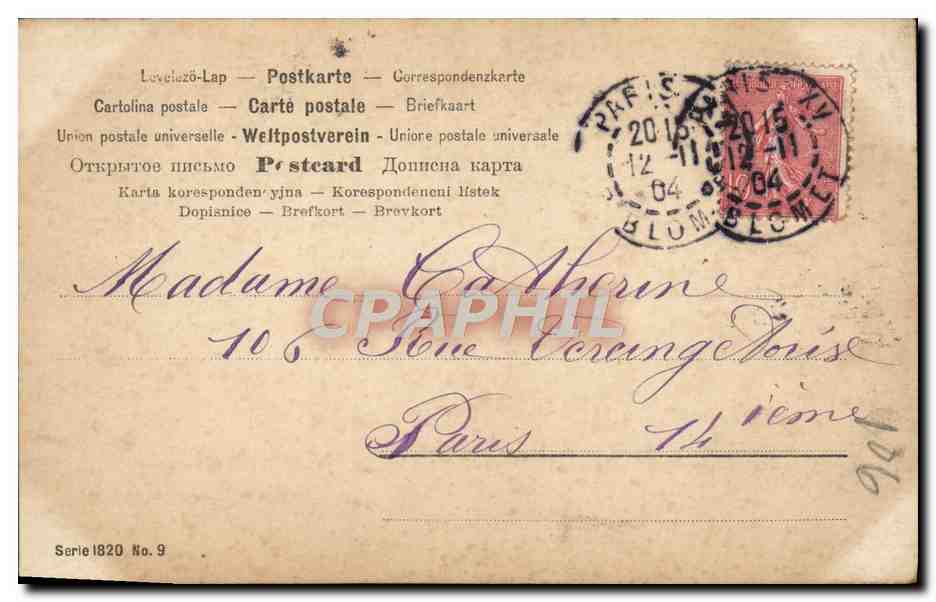 Levelező-Lap — Postkarte — Correspondenzkarte
Cartolina postale — Carte postale — Briefkaart
Union postale universelle - Weltpostverein - Unione postale universale
Открытое письмо Postcard Дописна карта
Karta korespondencyjna — Korespondencni lístek
Dopisnice — Brefkort — Brevkort
PARIS
20 15
12 -11
04
BLOM
PARIS XV
20 15
12 -11
04
BLOMET
10
Madame Catherine
CPAPHIL
106 Rue
Paris 14 ième
Serie 1820 No. 9